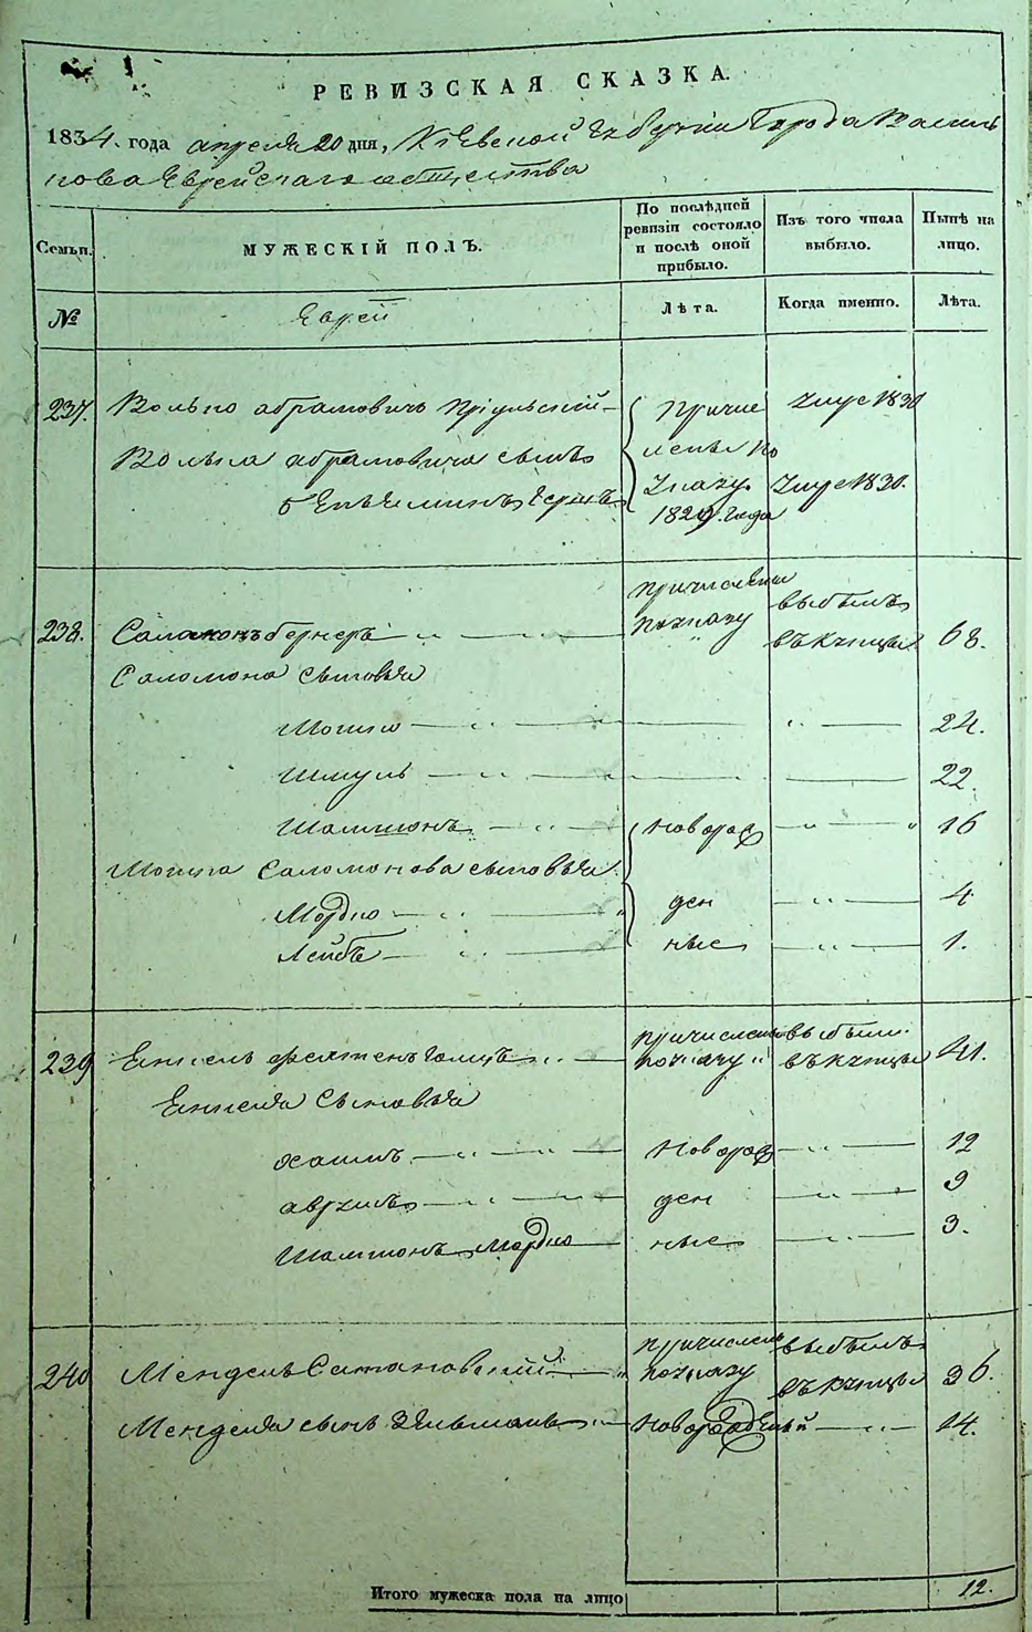 РЕВИЗСКАЯ СКАЗКА.
1834. года апреля 20 дня, Киевской Губернии Города Василь
кова Еврейскаго общества
Семьи.
МУЖЕСКІЙ ПОЛЪ.
По послѣдней ревизіи состояло и послѣ оной прибыло.
Изъ того числа выбыло.
Нынѣ на лицо.
№
Еврей
Лѣта.
Когда именно.
Лѣта.
237. Волько абрамовичъ — Причис 1830
Волька абрамовича сынъ лены по
Указу. 1830.
1829. года
238. Саламонъ бернеръ — причислены по указу выбылъ въ купцы 68.
Саломона сыновья
Мошко — 24.
Шмуль — 22.
Шамшонъ — новорож — 16
Мошка Саломонова сыновья
Мордко — ден — 4
Лейбъ — ные — 1.
239 — причислены по указу выбыли въ купцы 41.
сыновья
хаимъ — Новорож — 12
аврумъ — ден — 9
Шамшонъ Мордко — ные — 3.
240 Мендель Сатановский — причисленъ по указу выбылъ въ купцы 36.
Менделя сынъ Зельманъ — новорожденый — 14.
Итого мужеска пола на лицо 12.